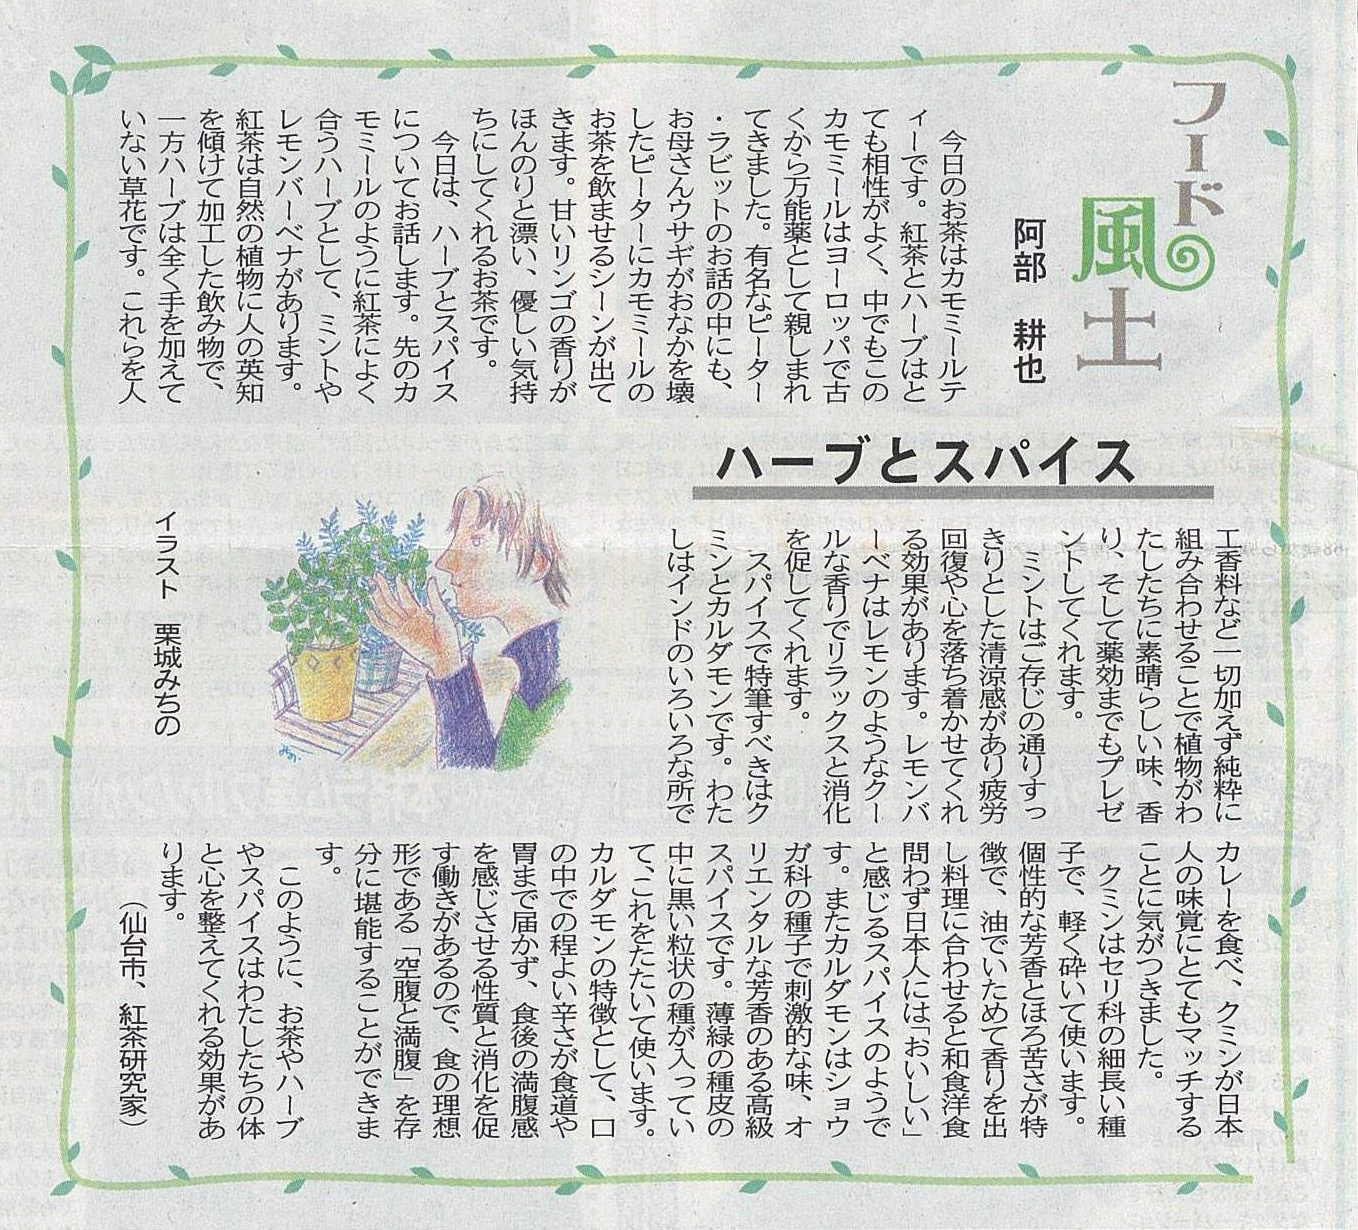 フード風土
阿部 耕也
ハーブとスパイス
今日のお茶はカモミールテ
ィーです。紅茶とハーブはと
ても相性がよく、中でもこの
カモミールはヨーロッパで古
くから万能薬として親しまれ
てきました。有名なピーター
・ラビットのお話の中にも、
お母さんウサギがおなかを壊
したピーターにカモミールの
お茶を飲ませるシーンが出て
きます。甘いリンゴの香りが
ほんのりと漂い、優しい気持
ちにしてくれるお茶です。
今日は、ハーブとスパイス
についてお話します。先のカ
モミールのように紅茶によく
合うハーブとして、ミントや
レモンバーベナがあります。
紅茶は自然の植物に人の英知
を傾けて加工した飲み物で、
一方ハーブは全く手を加えて
いない草花です。これらを人
工香料など一切加えず純粋に
組み合わせることで植物がわ
たしたちに素晴らしい味、香
り、そして薬効までもプレゼ
ントしてくれます。
ミントはご存じの通りすっ
きりとした清涼感があり疲労
回復や心を落ち着かせてくれ
る効果があります。レモンバ
ーベナはレモンのようなクー
ルな香りでリラックスと消化
を促してくれます。
スパイスで特筆すべきはク
ミンとカルダモンです。わた
しはインドのいろいろな所で
カレーを食べ、クミンが日本
人の味覚にとてもマッチする
ことに気がつきました。
クミンはセリ科の細長い種
子で、軽く砕いて使います。
個性的な芳香とほろ苦さが特
徴で、油でいためて香りを出
し料理に合わせると和食洋食
問わず日本人には「おいしい」
と感じるスパイスのようで
す。またカルダモンはショウ
ガ科の種子で刺激的な味、オ
リエンタルな芳香のある高級
スパイスです。薄緑の種皮の
中に黒い粒状の種が入ってい
て、これをたたいて使います。
カルダモンの特徴として、口
の中での程よい辛さが食道や
胃まで届かず、食後の満腹感
を感じさせる性質と消化を促
す働きがあるので、食の理想
形である「空腹と満腹」を存
分に堪能することができま
す。
このように、お茶やハーブ
やスパイスはわたしたちの体
と心を整えてくれる効果があ
ります。
（仙台市、紅茶研究家）
イラスト 栗城みちの